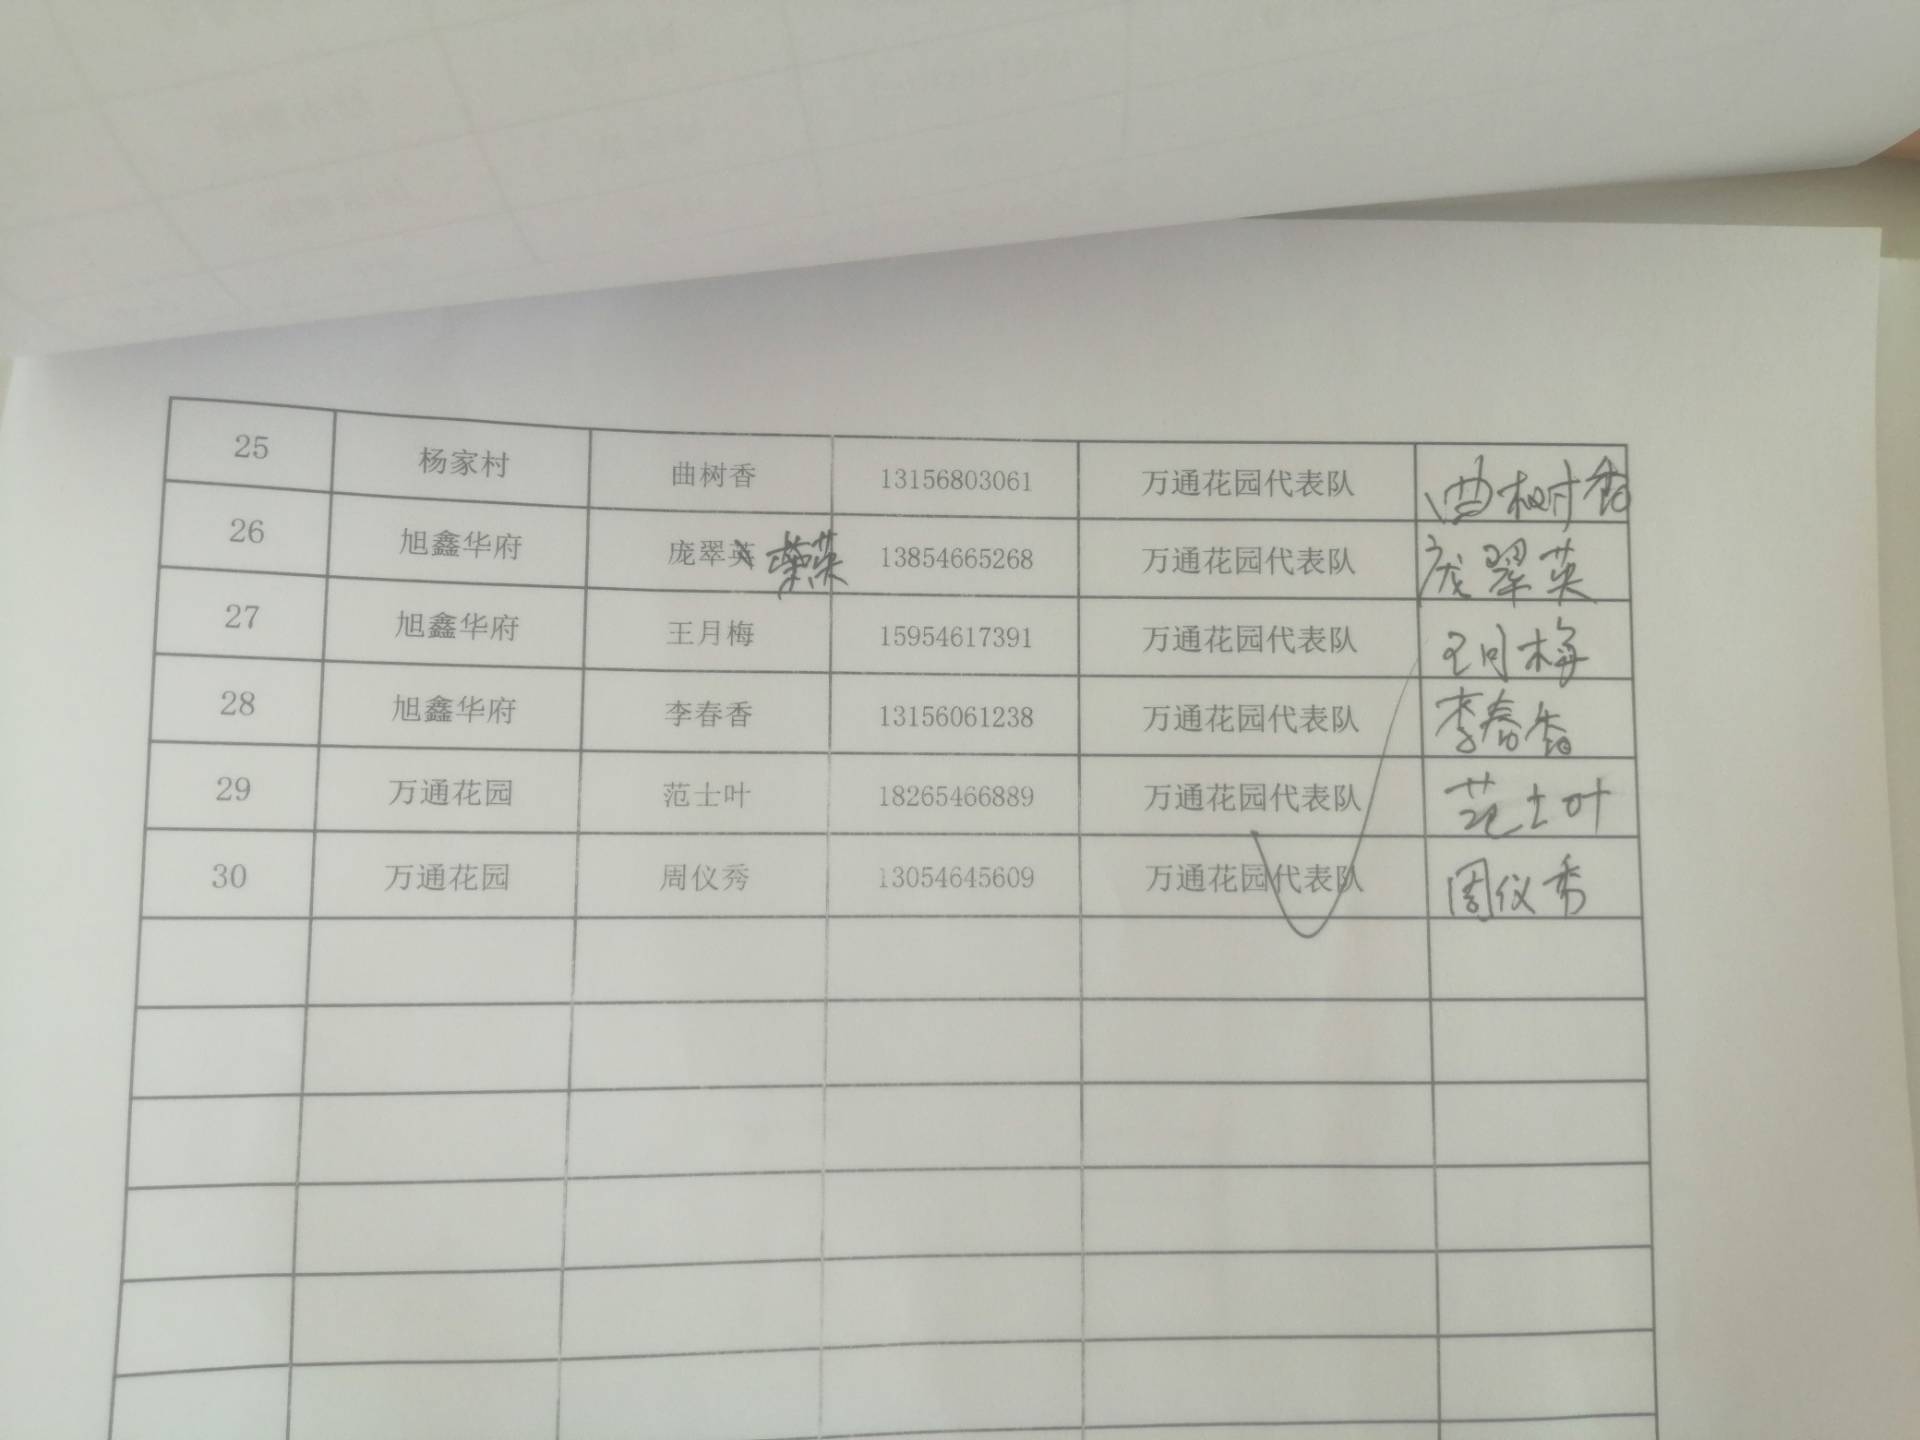 25 杨家村 曲树香 13156803061 万通花园代表队 曲树香
26 旭鑫华府 庞翠英 英 13854665268 万通花园代表队 庞翠英
27 旭鑫华府 王月梅 15954617391 万通花园代表队 王月梅
28 旭鑫华府 李春香 13156061238 万通花园代表队 李春香
29 万通花园 范士叶 18265466889 万通花园代表队 范士叶
30 万通花园 周仪秀 13054645609 万通花园代表队 周仪秀